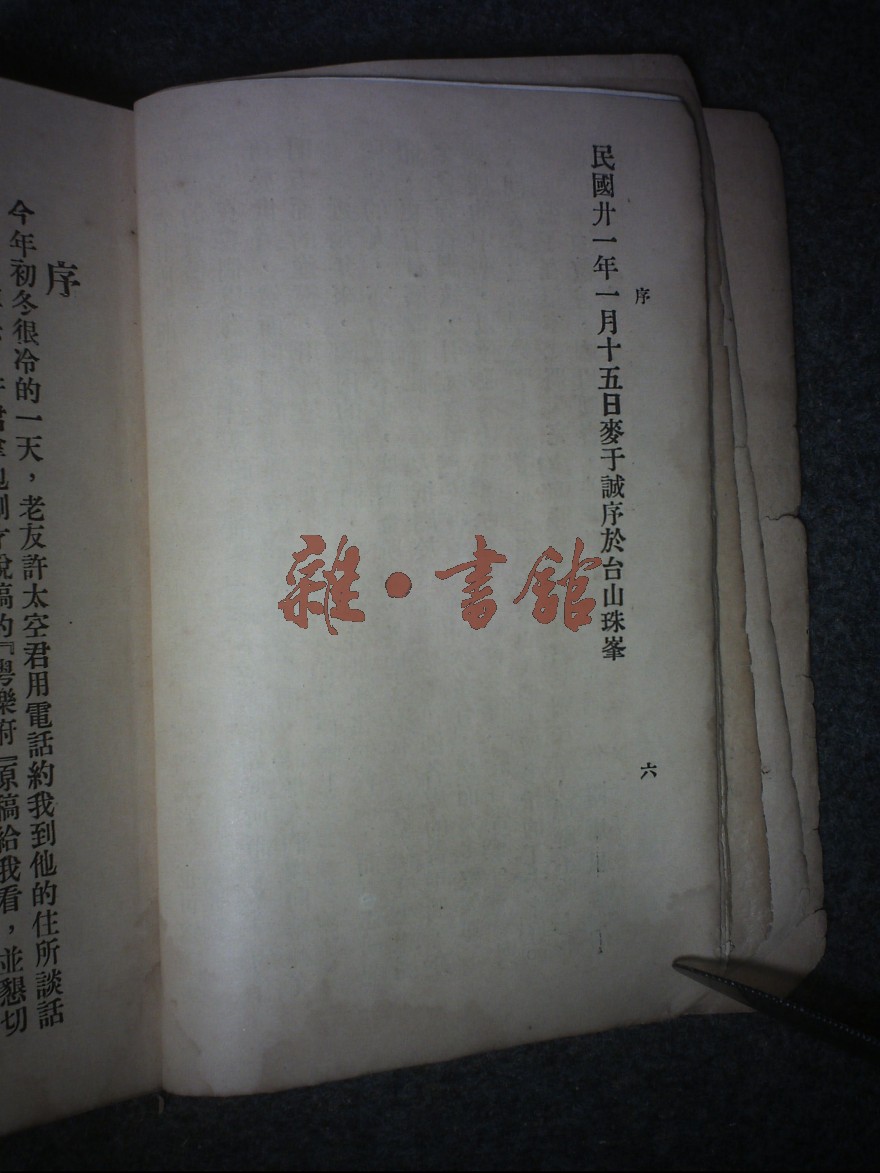 序
民國廿一年一月十五日麥于誠序於台山珠峯
六
雜·書館
序
今年初冬很冷的一天，老友許太空君用電話約我到他的住所談話
脫稿的『粵樂府』原稿給我看，並懇切